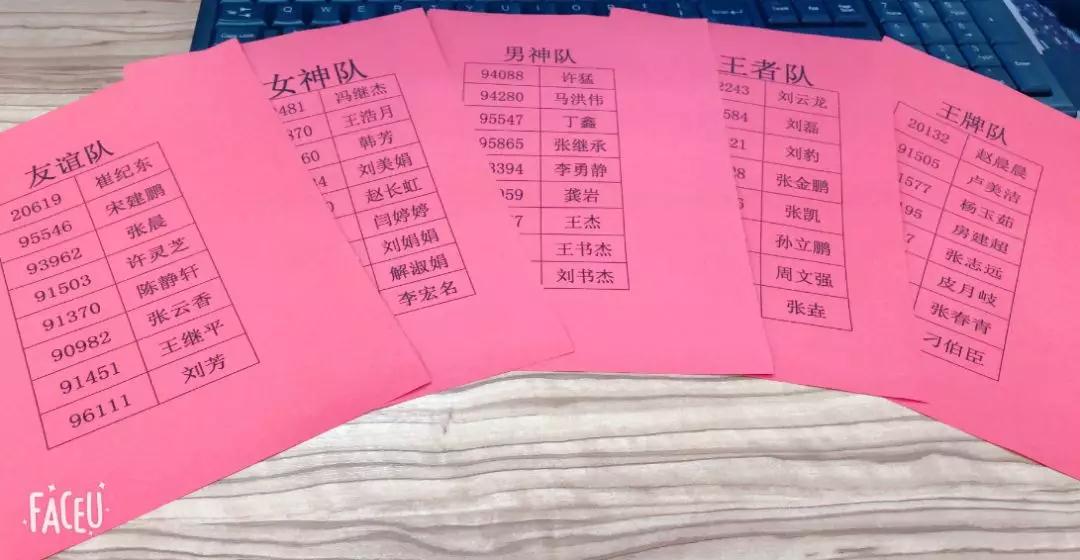 友谊队
20619 崔纪东
95546 宋建鹏
93962 张晨
91503 许灵芝
91370 陈静轩
90982 张云香
91451 王继平
96111 刘芳
女神队
481 冯继杰
370 王浩月
60 韩芳
刘美娟
赵长虹
闫婷婷
刘娟娟
解淑娟
李宏名
男神队
94088 许猛
94280 马洪伟
95547 丁鑫
95865 张继承
3394 李勇静
059 龚岩
王杰
王书杰
刘书杰
王者队
2243 刘云龙
584 刘磊
21 刘豹
张金鹏
张凯
孙立鹏
周文强
张垚
王牌队
20132 赵晨晨
91505 卢美洁
1577 杨玉茹
195 房建超
7 张志远
皮月岐
张春青
刁伯臣
FACEU